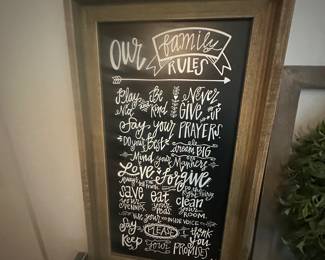 our family
RULES
Play Nice and Be Kind Never GIVE up
Say your PRAYERS
Do your Best dream BIG
Mind your Manners
Love & Forgive
Always tell the truth Do the Right Thing
save eat clean
your PENNIES. your PEAS. your ROOM.
Use your INSIDE VOICE
Say PLEASE & thank you
Keep your PROMISES